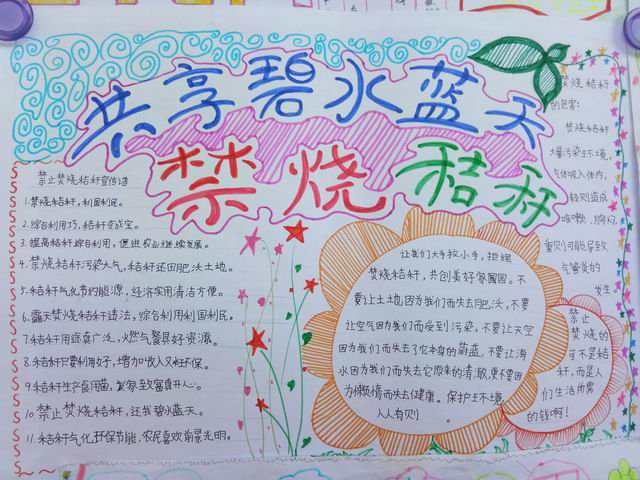 共享碧水蓝天
禁烧秸秆
禁止焚烧秸秆宣传语
1.禁烧秸秆,利国利民。
2.综合利用巧,秸秆变成宝。
3.提高秸秆综合利用,促进农业继续发展。
4.焚烧秸秆污染大气,秸秆还田肥沃土地。
5.秸秆气化节约能源,经济实用清洁方便。
6.露天焚烧秸秆违法,综合利用利国利民。
7.秸秆用途真广泛,火燃气餐具好资源。
8.秸秆只要利用好,增加收入又环保。
9.秸秆生产食用菌,发家致富真开心。
10.禁止焚烧秸秆,还我碧水蓝天。
11.秸秆气化环保节能,农民喜欢前景光明。
让我们大手拉小手,拒绝
焚烧秸秆,共创美好家园。不
要让土地因为我们而失去肥沃,不要
让空气因为我们而受到污染,不要让天空
因为我们而失去了它本身的蔚蓝,不要让海
水因为我们而失去它原来的清澈,更不要因
为懒惰而失去健康。保护环境,
人人有则。
焚烧秸秆
的危害:
焚烧秸秆
大量污染环境,
气体吸入体内,
轻则造成
咳嗽、胸闷
重则可能导致
气管炎的
发生
禁止
焚烧的
可不是秸
秆,而是人
们生活所需
的钱啊!